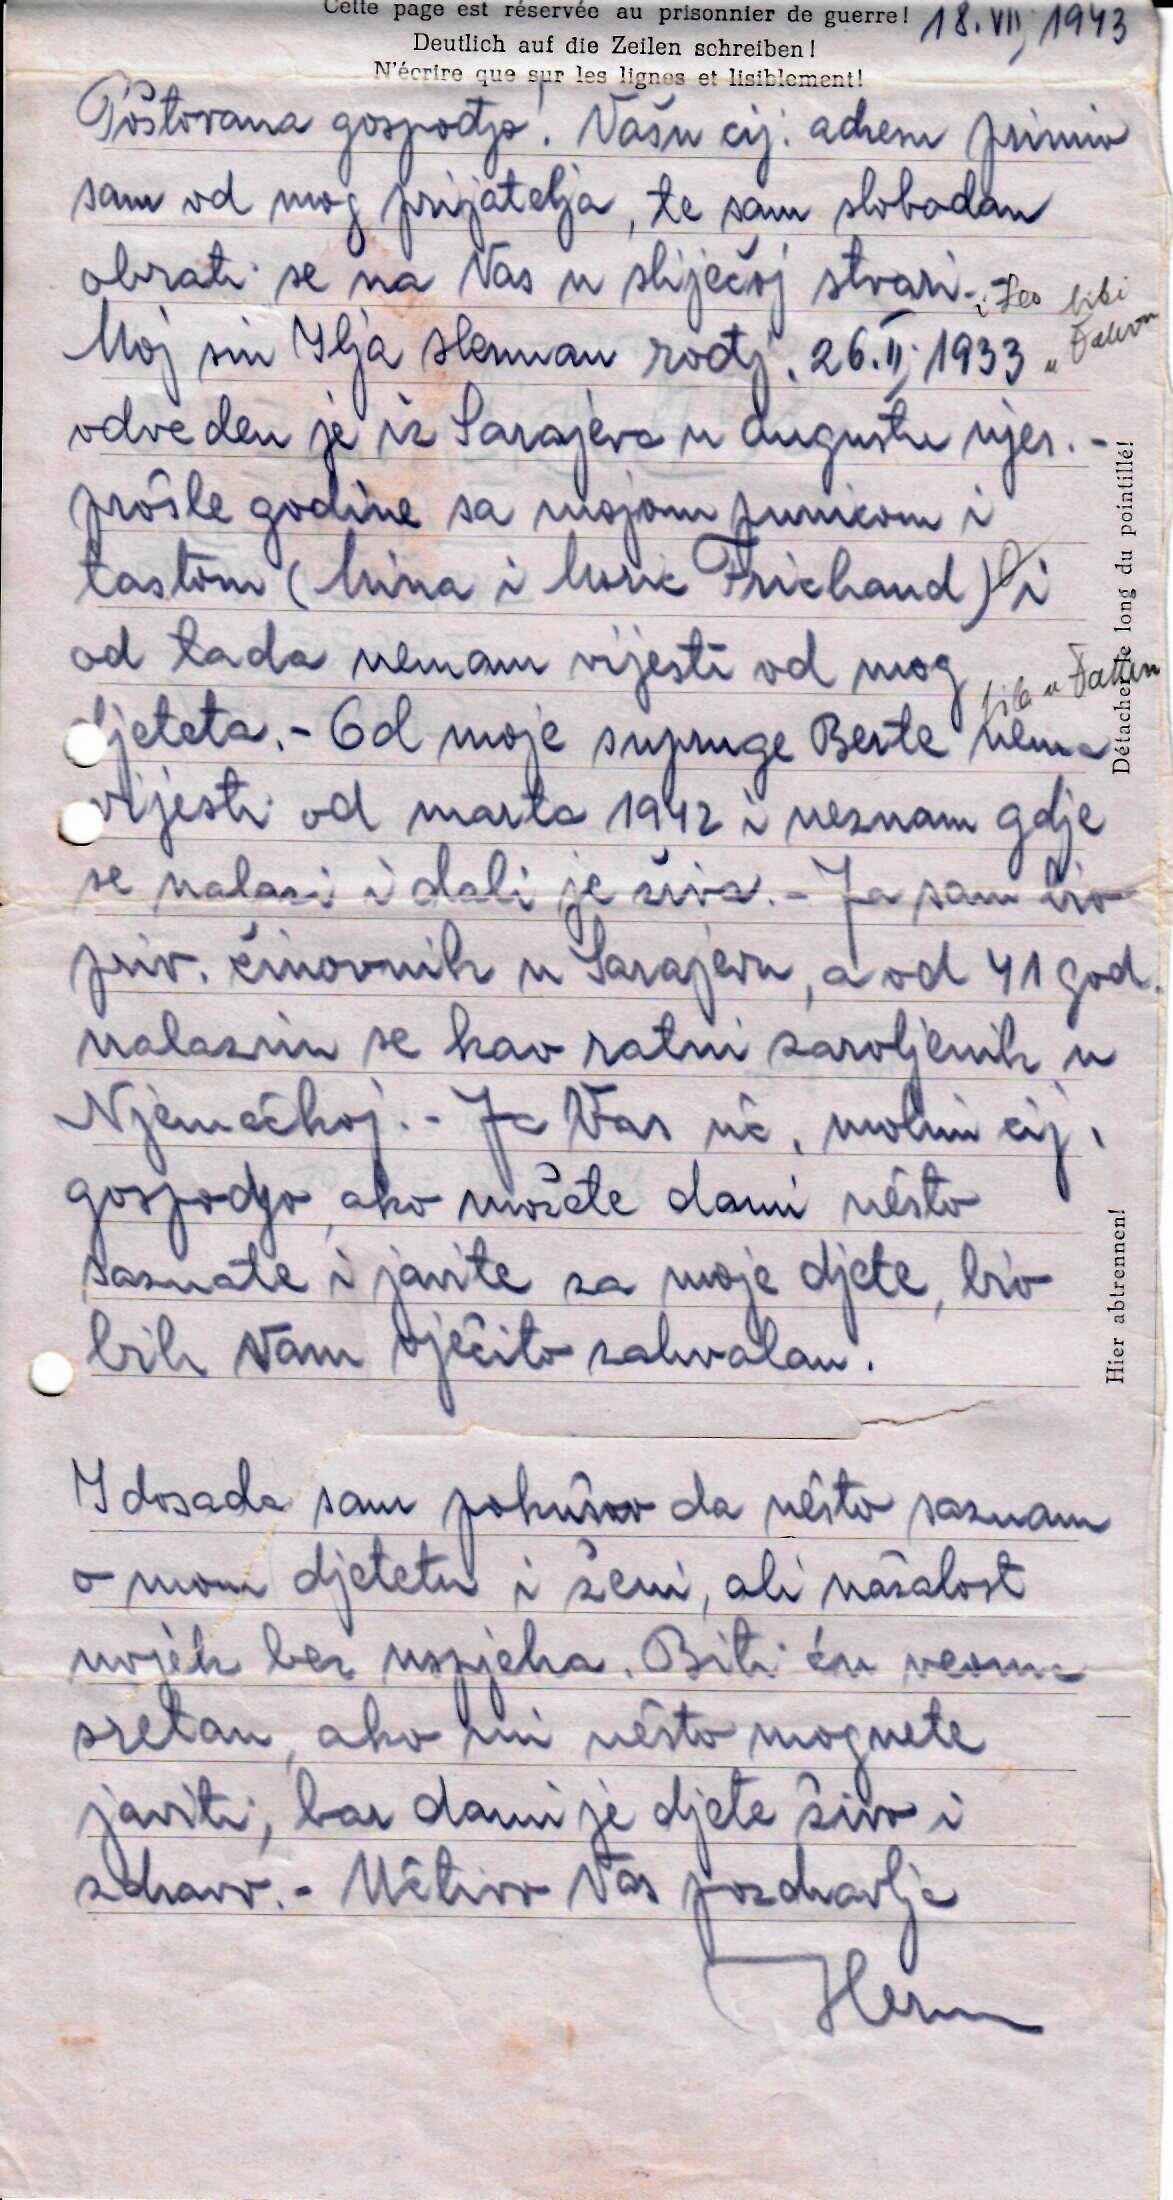 Cette page est réservée au prisonnier de guerre! 18.VII.1943
Deutlich auf die Zeilen schreiben!
N'écrire que sur les lignes et lisiblement!
Poštovana gospodjo! Vašu cij. adresu primio
sam od mog prijatelja, te sam slobodan
obrati se na Vas u slijećoj stvari.-
i Leo bibi
Moj sin Ilja rodj. 26.II.1933
u Đakovu
odveden je iz Sarajeva u augustu mjes.-
prošle godine sa mojom punicom i
tastom (Mina i Moric Frichand) i
od tada nemam vijesti od mog
bila u Đakovu
djeteta.- Od moje supruge Berte nema
vijesti od marta 1942 i neznam gdje
se nalazi i dali je živa.- Ja sam bio
priv. činovnik u Sarajevu, a od 41 god.
nalazim se kao ratni zarobljenik u
Njemačkoj.- Ja Vas uč. molim cij.
gospodjo, ako možete dami nešto
saznate i javite za moje djete, bio
bih Vam vječito zahvalan.
I dosada sam pokušao da nešto saznam
o mom djetetu i ženi, ali nažalost
uvjek bez uspjeha. Biti ću veoma
sretan, ako mi nešto mognete
javiti, bar dami je djete živo i
zdravo.- Učtivo Vas pozdravlja
Détacher le long du pointillé!
Hier abtrennen!